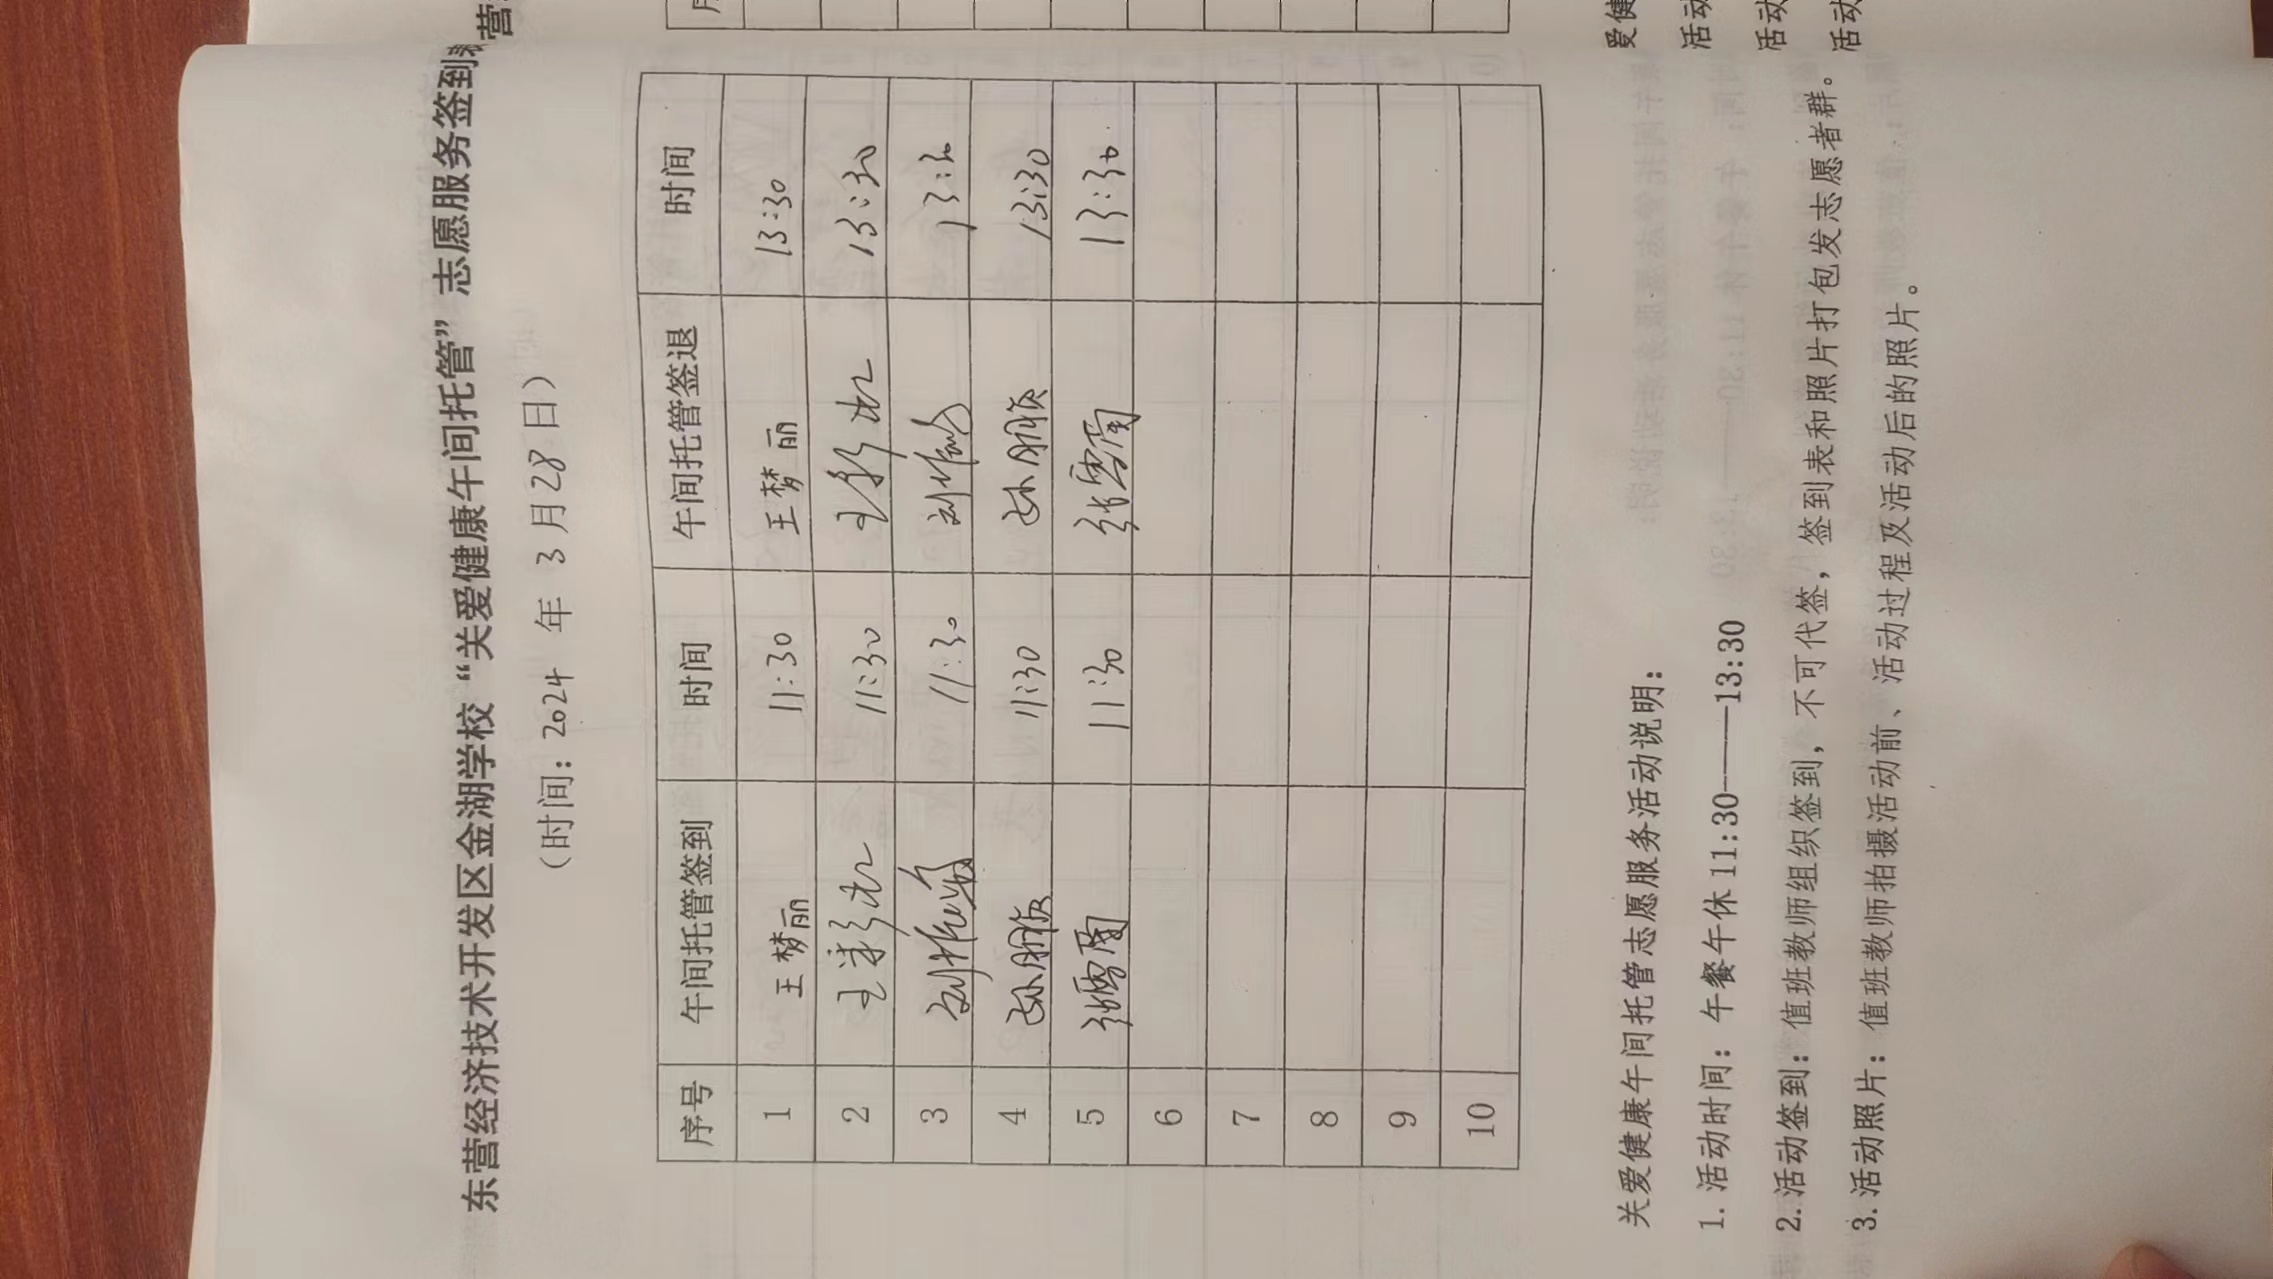 东营经济技术开发区金湖学校“关爱健康午间托管”志愿服务签到表
（时间：2024 年 3 月 28 日）
序号 午间托管签到 时间 午间托管签退 时间
1 王梦丽 11:30 王梦丽 13:30
2 王彩红 11:30 王彩红 13:30
3 11:30 13:30
4 11:30 13:30
5 张雪 11:30 张雪 13:30
6
7
8
9
10
关爱健康午间托管志愿服务活动说明：
1. 活动时间：午餐午休 11:30——13:30
2. 活动签到：值班教师组织签到，不可代签，签到表和照片打包发志愿者群。
3. 活动照片：值班教师拍摄活动前、活动过程及活动后的照片。